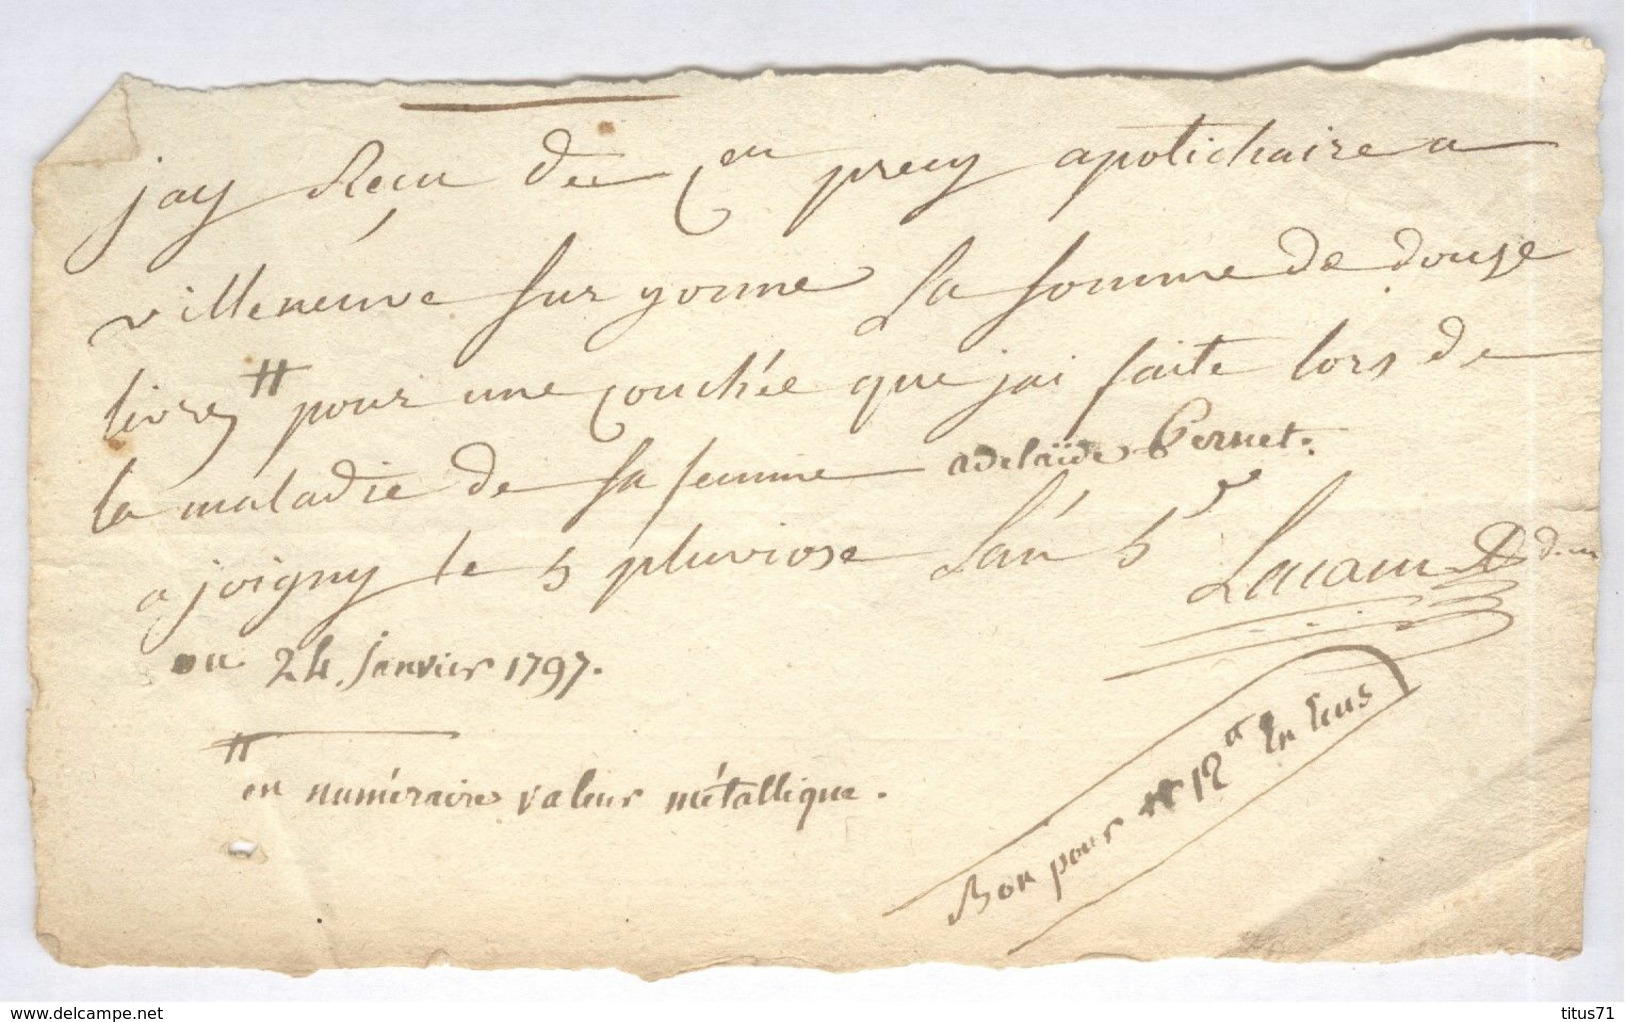 jay Recu du Cen precy apotichaire a
villeneuve sur yonne La somme de douze
livres # pour une couchée que jai faite lors de
la maladie de sa femme adelaïde Pernet.
a joigny le 5 pluviose L'an 5e
Lacam
ou 24 Janvier 1797.
#
en numéraire valeur métallique.
Bon pour 12# En tous
www.delcampe.net
titus71